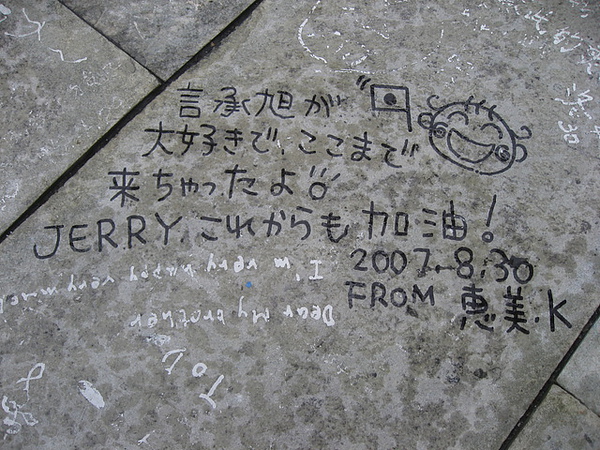 言承旭が
大好きで、ここまで
来ちゃったよ
JERRY.これからも 加油!
2007.8.30
FROM 恵美.K
I'm very happy very much
Dear My brother
TO L